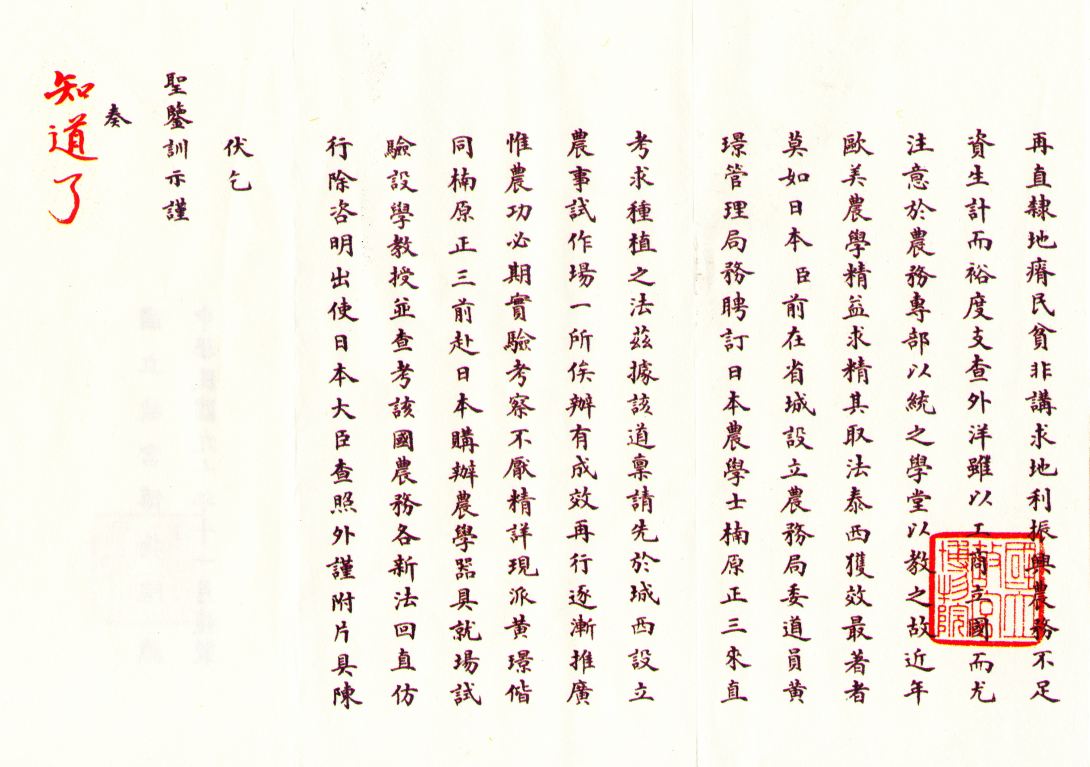 再直隸地瘠民貧非講求地利振興農務不足
資生計而裕度支查外洋雖以工商立國而尤
注意於農務專部以統之學堂以教之故近年
歐美農學精益求精其取法泰西獲效最著者
莫如日本臣前在省城設立農務局委道員黃
璟管理局務聘訂日本農學士楠原正三來直
考求種植之法茲據該道稟請先於城西設立
農事試作場一所俟辦有成效再行逐漸推廣
惟農功必期實驗考察不厭精詳現派黃璟偕
同楠原正三前赴日本購辦農學器具就場試
驗設學教授並查考該國農務各新法回直仿
行除咨明出使日本大臣查照外謹附片具陳
伏乞
聖鑒訓示謹
奏
知道了
國立
故宮
博物院